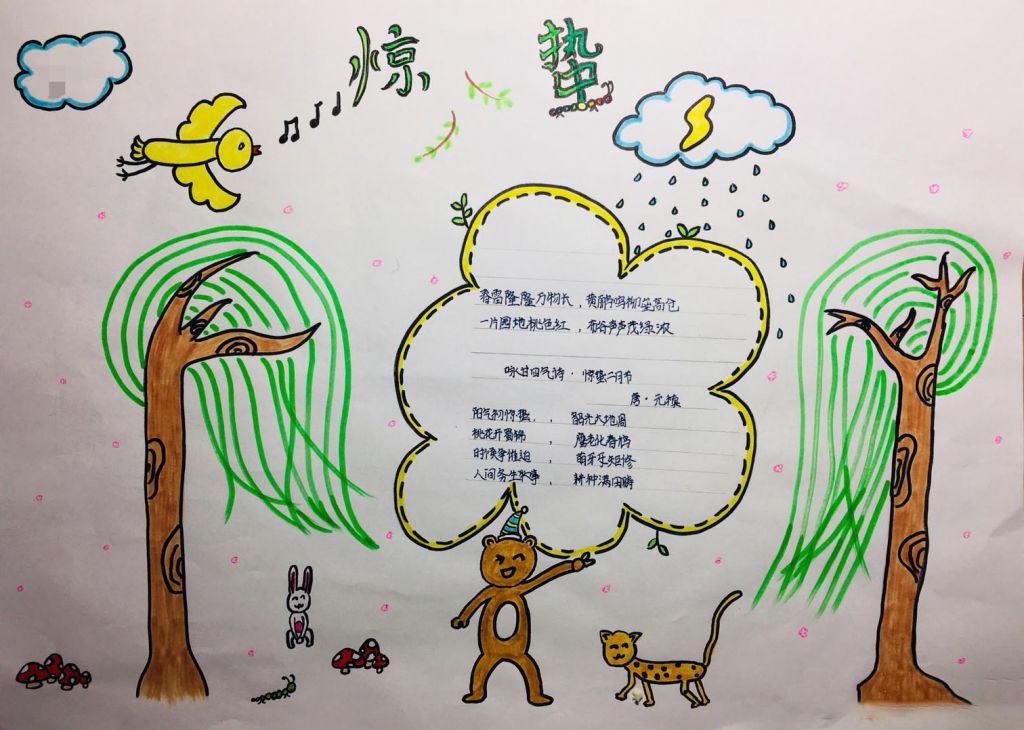 惊蛰
春雷隆隆万物长，黄鹂鸣柳笙高仓
一片园地桃色红，布谷声声茂绿浓
咏廿四气诗·惊蛰二月节
唐·元稹
阳气初惊蛰，韶光大地周
桃花开蜀锦，鹰老化春鸠
时候争催迫，萌芽矩修
人间务生事，耕种满田畴